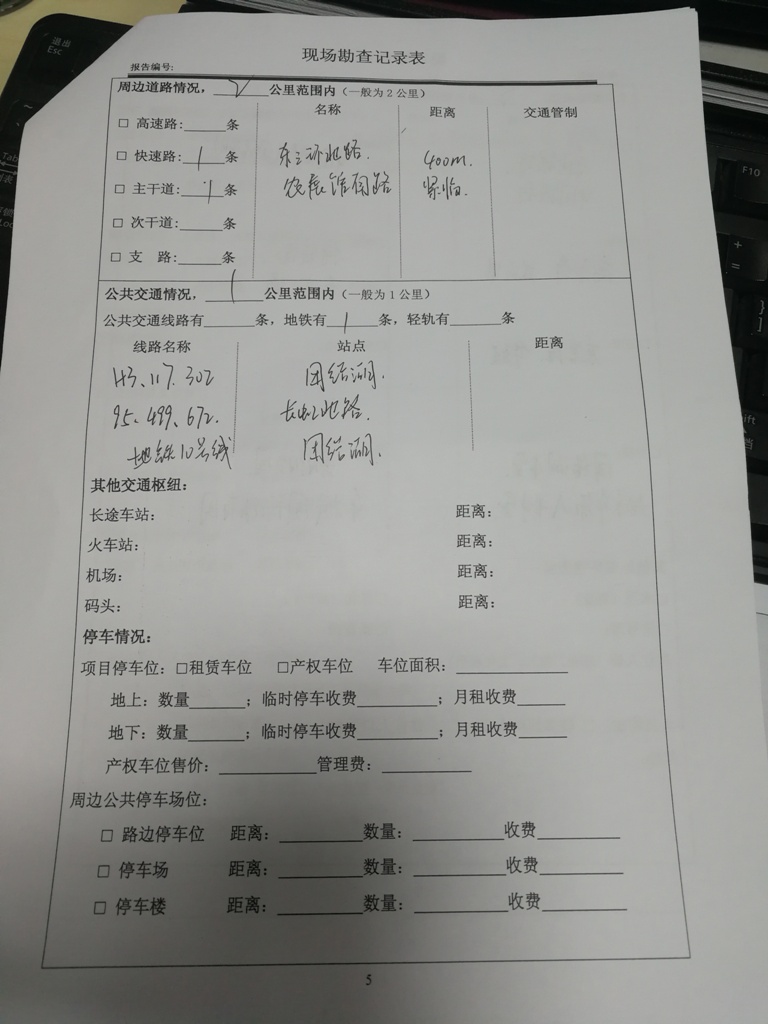 现场勘查记录表
报告编号:
周边道路情况，__2__公里范围内（一般为2公里）
名称 距离 交通管制
□ 高速路:_____条
□ 快速路:__1__条 东三环北路. 400m.
□ 主干道:__1__条 农展馆南路 紧临.
□ 次干道:_____条
□ 支 路:_____条
公共交通情况，__1__公里范围内（一般为1公里）
公共交通线路有______条，地铁有__1__条，轻轨有______条
线路名称 站点 距离
113、117、302 团结湖.
95、499、672. 长虹北路.
地铁10号线 团结湖.
其他交通枢纽:
长途车站: 距离:
火车站: 距离:
机场: 距离:
码头: 距离:
停车情况:
项目停车位: □租赁车位 □产权车位 车位面积:____________
地上: 数量______; 临时停车收费_________; 月租收费_____
地下: 数量______; 临时停车收费_________; 月租收费_____
产权车位售价: __________管理费: _________
周边公共停车场位:
□ 路边停车位 距离: _________数量: _________收费_________
□ 停车场 距离: _________数量: _________收费_________
□ 停车楼 距离: _________数量: _________收费_________
5
退出
Esc
Tab
F10
+
=
}
]